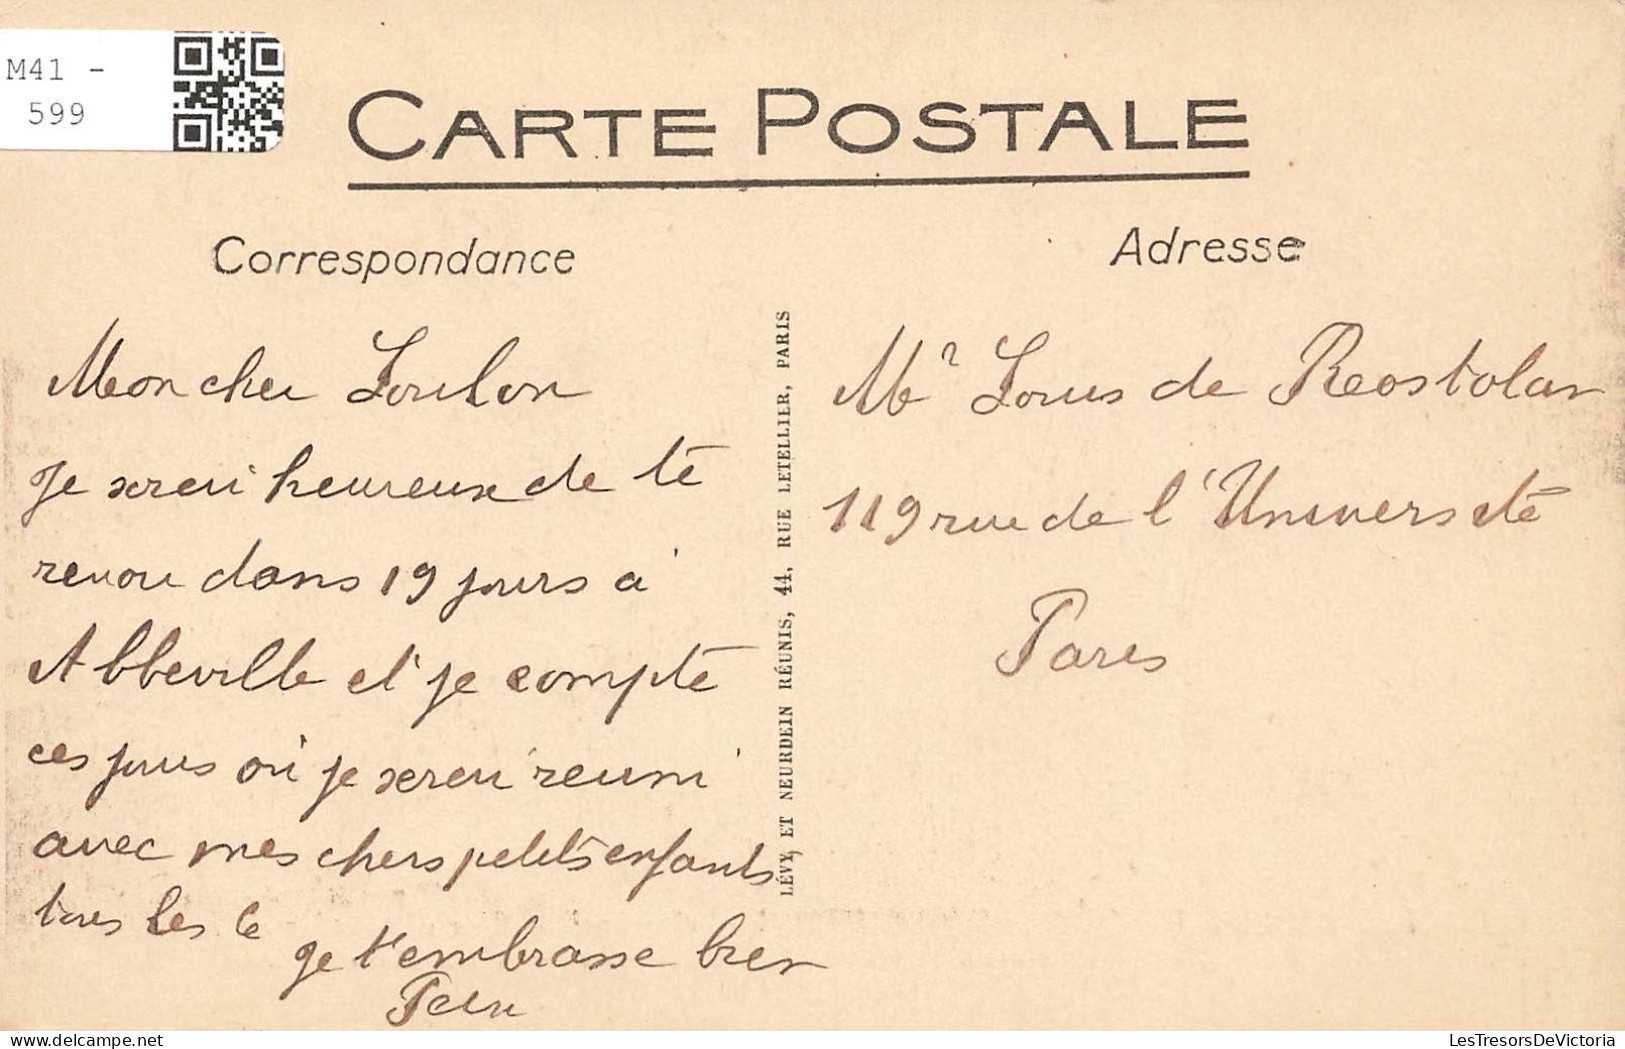 M41 -
599
CARTE POSTALE
Correspondance
Adresse
Mon cher Loulou
Je serai heureuse de te
revoir dans 19 jours à
Abbeville et je compte
ces jours où je serai réuni
avec mes chers petits enfants
tous les 6
Je t'embrasse bien
LÉVY ET NEURDEIN RÉUNIS, 44, RUE LETELLIER, PARIS
Mr Louis de Rostolan
119 rue de l'Université
Paris
LesTresorsDeVictoria
delcampe.net